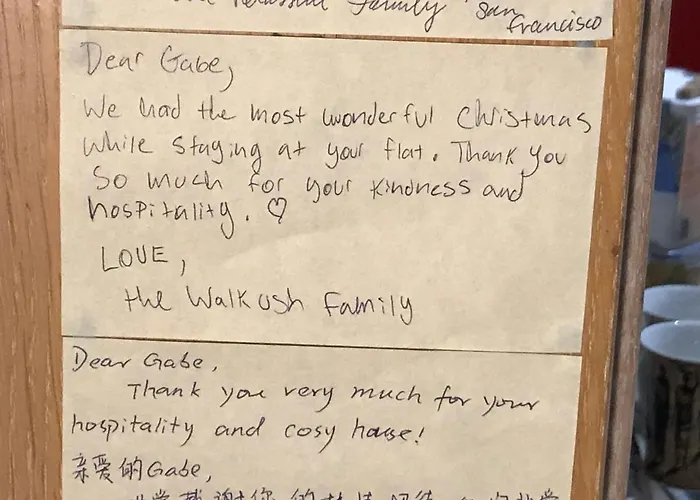 Family San
Francisco
Dear Gabe,
We had the most wonderful Christmas
while staying at your flat. Thank you
so much for your kindness and
hospitality. ♡
LOVE,
the Walkush Family
Dear Gabe,
Thank you very much for your
hospitality and cosy house!
亲爱的Gabe,
非常感谢你的热情招待